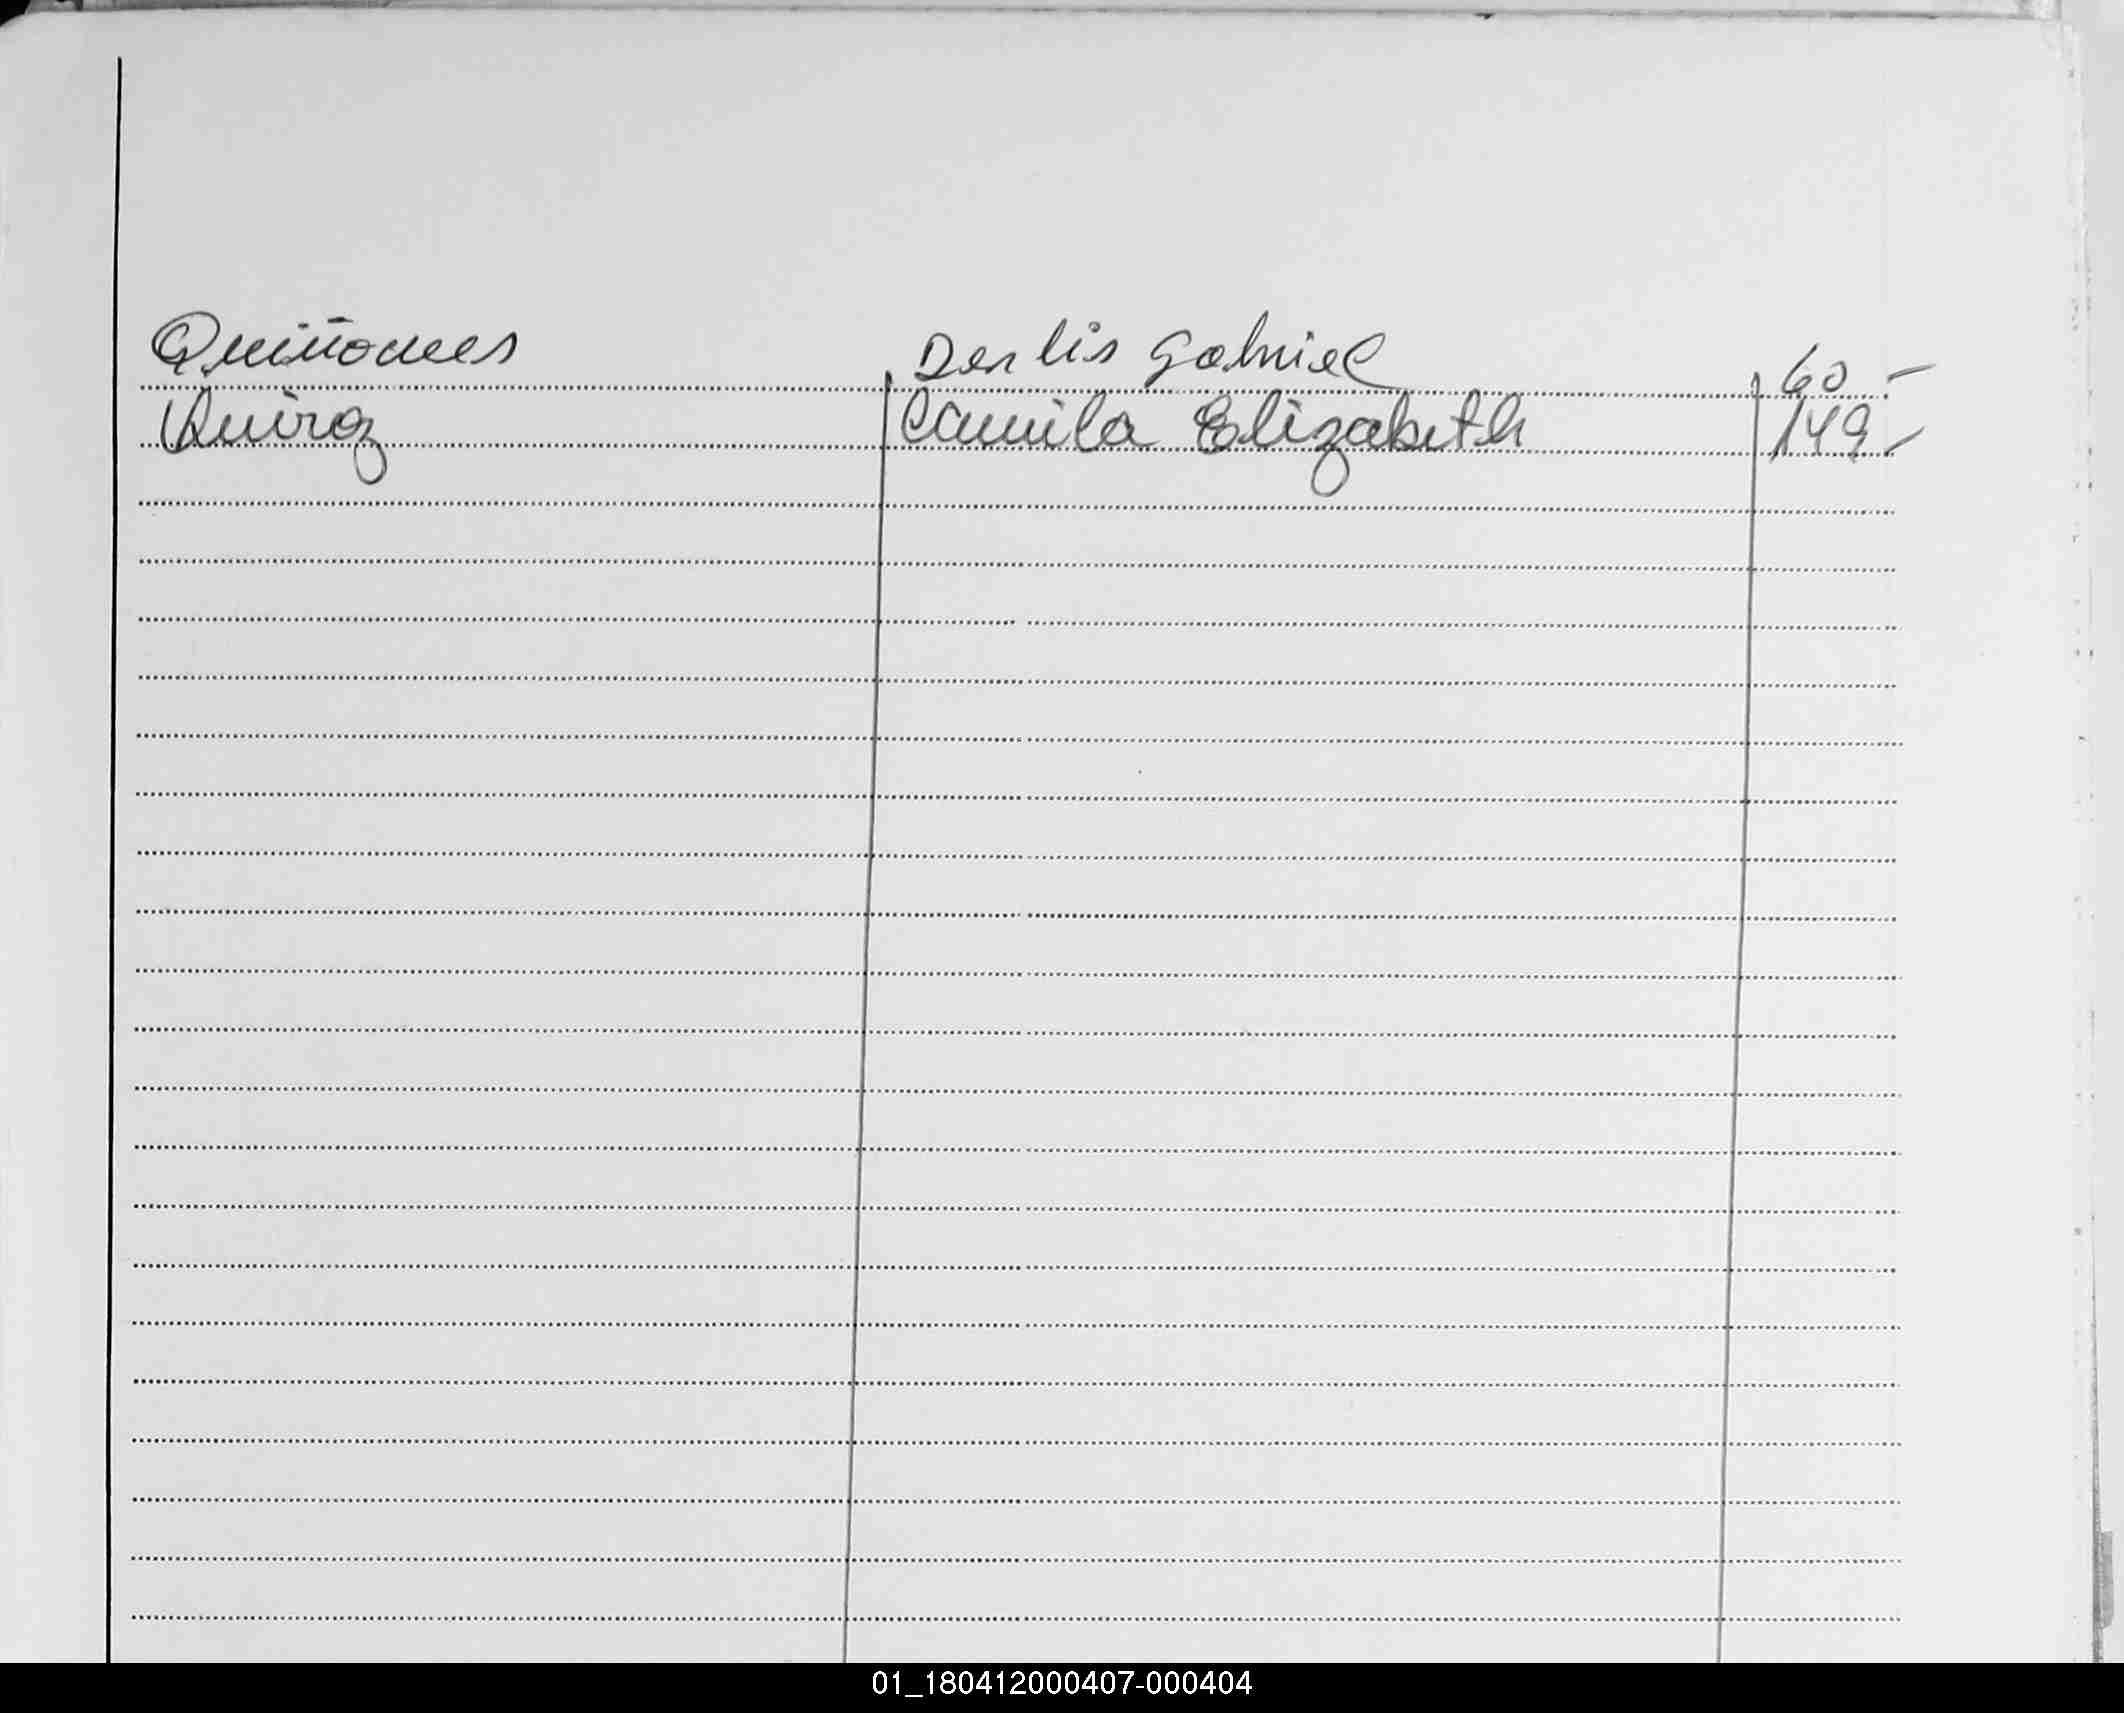 Quiñones Derlis Gabriel 60.-
Quiroz Camila Elizabeth 149-
01_180412000407-000404